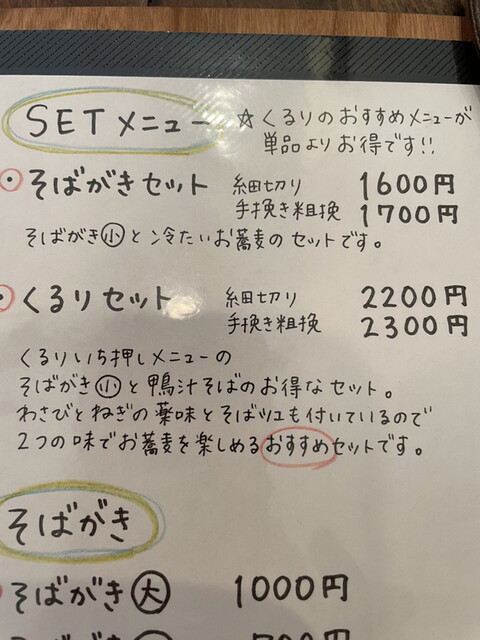 SETメニュー
☆くるりのおすすめメニューが
単品よりお得です!!
そばがきセット 細切り 1600円
手挽き粗挽 1700円
そばがき小と冷たいお蕎麦のセットです。
くるりセット 細切り 2200円
手挽き粗挽 2300円
くるりいち押しメニューの
そばがき小と鴨汁そばのお得なセット。
わさびとねぎの薬味とそばツユも付いているので
2つの味でお蕎麦を楽しめるおすすめセットです。
そばがき
そばがき大 1000円